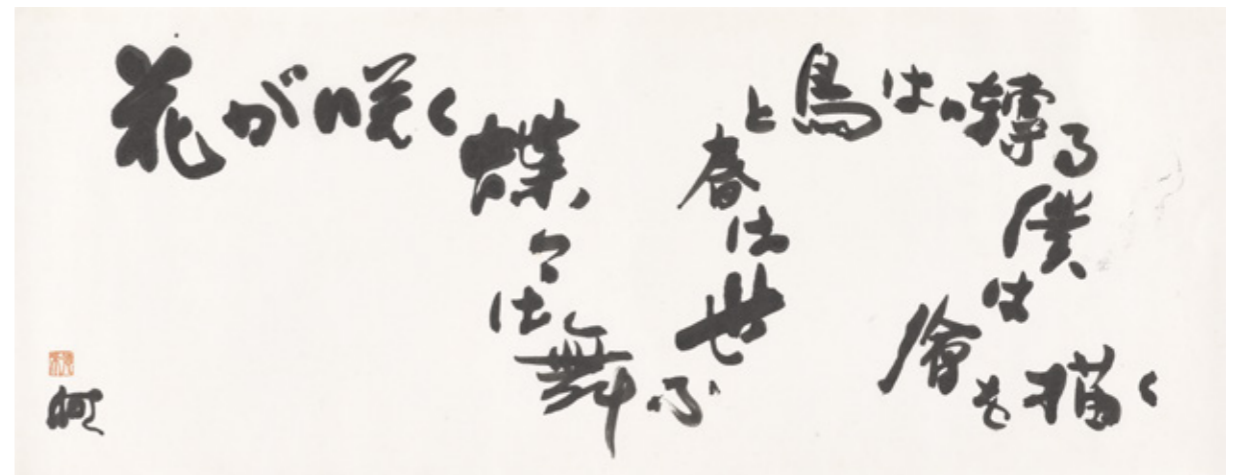 花が咲く蝶々は舞ふ世は春と鳥は囀る僕は繪を描く